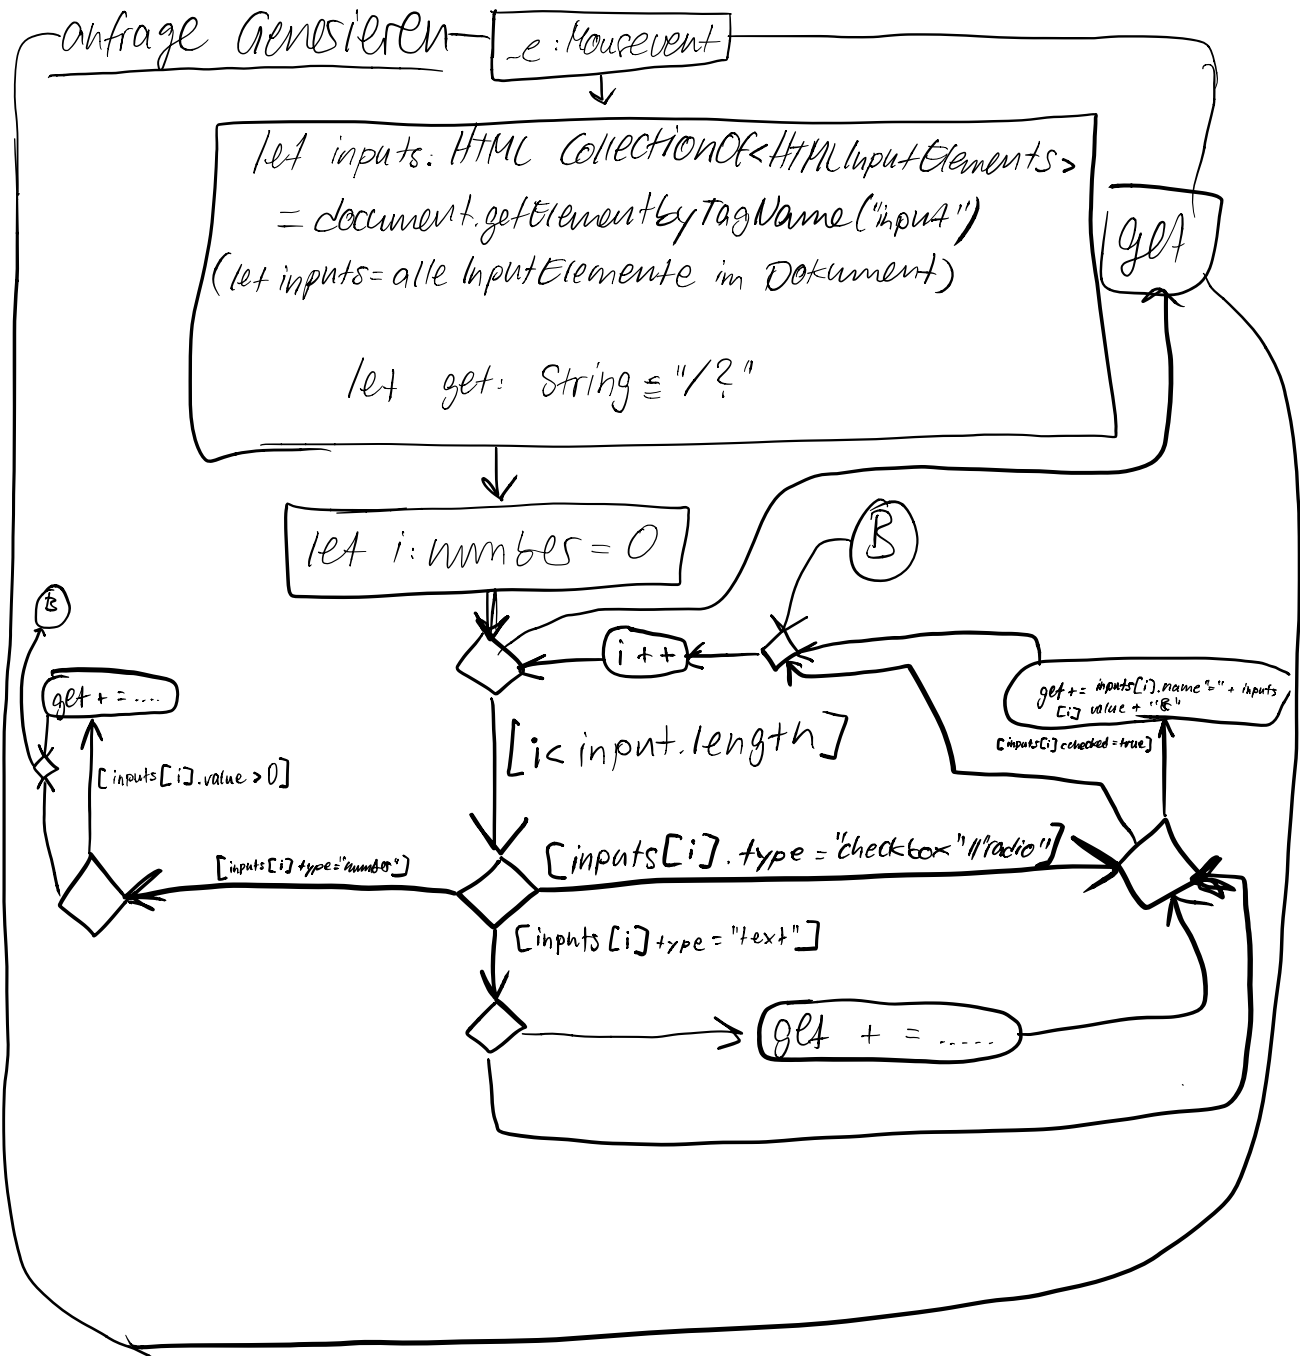 anfrage Generieren
_e: Mousevent
let inputs: HTML CollectionOf<HTMLInputElements>
= document.getElementbyTagName("input")
(let inputs = alle InputElemente im Dokument)
let get: String = "/?"
get
let i: number = 0
B
B
i ++
get + = ....
get += inputs[i].name "=" + inputs
[i] value + "&"
[inputs[i] checked = true]
[i< input.length]
[inputs[i].value > 0]
[inputs[i].type = "checkbox"||"radio"]
[inputs[i] type = "number"]
[inputs[i] type = "text"]
get + = .....